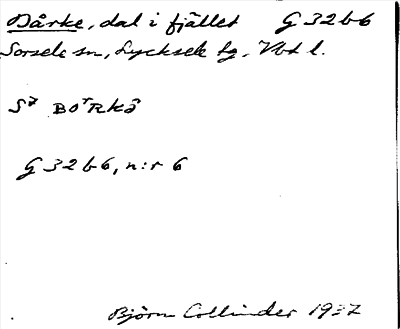 Bårke, dal i fjället G 32 b 6
Sorsele sn, Lycksele tg. Vbt l.
S⁷ BOᵀRKƏ̂
G 32 b 6, n:r 6
Björn Collinder 1937